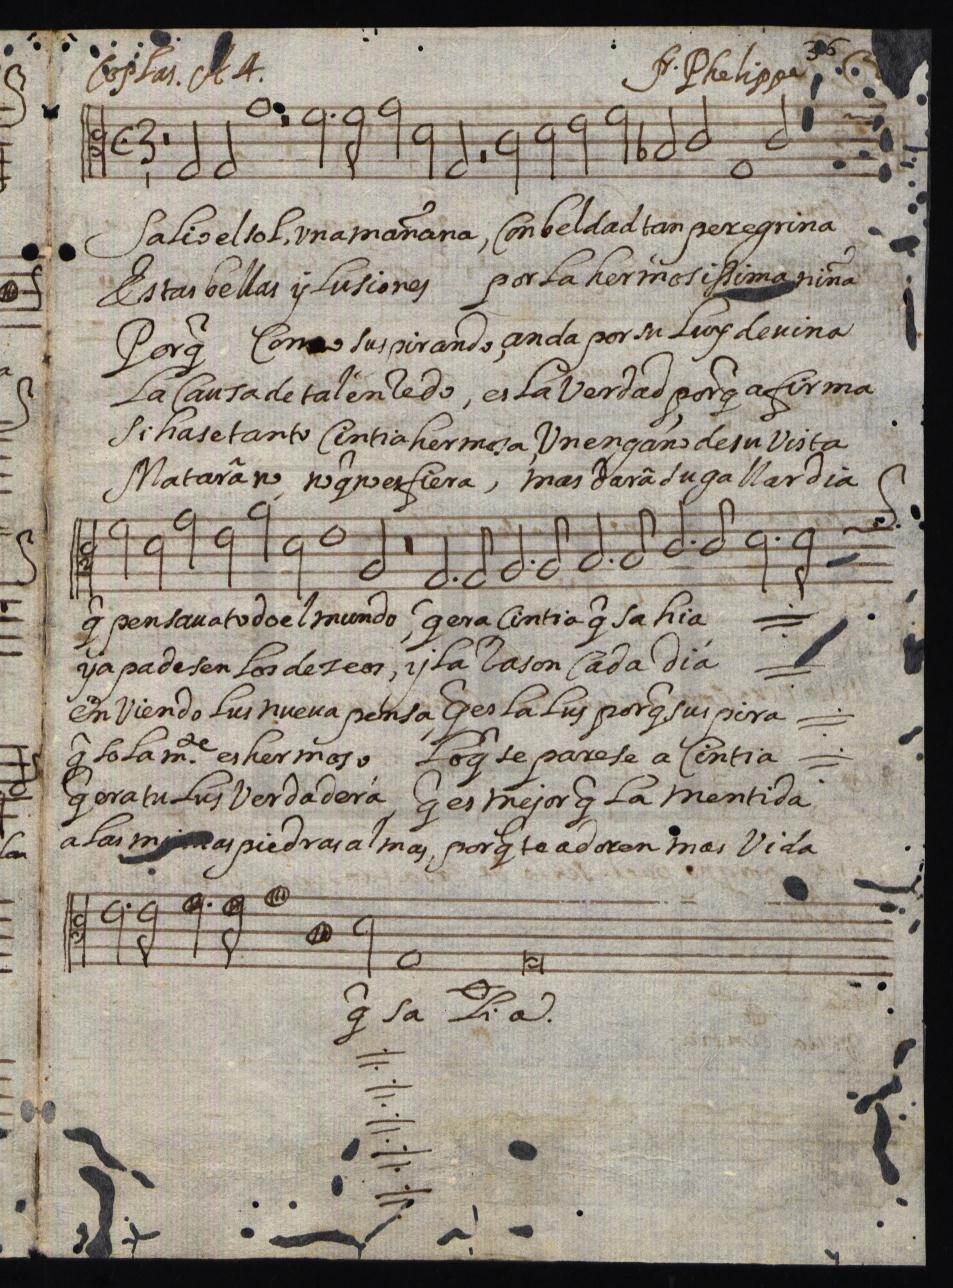 Coplas. A 4. fr. Phelippe 36
Salio el sol, vna mañana, Con beldad tan peregrina
Estas bellas ylusiones por la hermosissima niña
Porq̃ Como suspirando, anda por su Luz deuina
La Causa de tal enredo, es la Verdad, porq̃ afirma
Si hase tanto Cintia hermosa, Vn engaño de su Vista
Matarã no, noq̃ no es fiera, mas darã su gallardia
q̃ pensaua todo el mundo, q̃ era Cintia q̃ sahia
ya padesen los dezeos, y la Rason Cada dia
en Viendo Lus nueua pensa, q̃ es la Lus porq̃ suspira
q̃ solam.te es hermoso Loq̃ te parese a Cintia
q̃ era tu Lus Verdadera, q̃ es mejor q̃ La mentida
a las mismas piedras almas, porq̃ te adoren mas Vida
q̃ sa Lia.